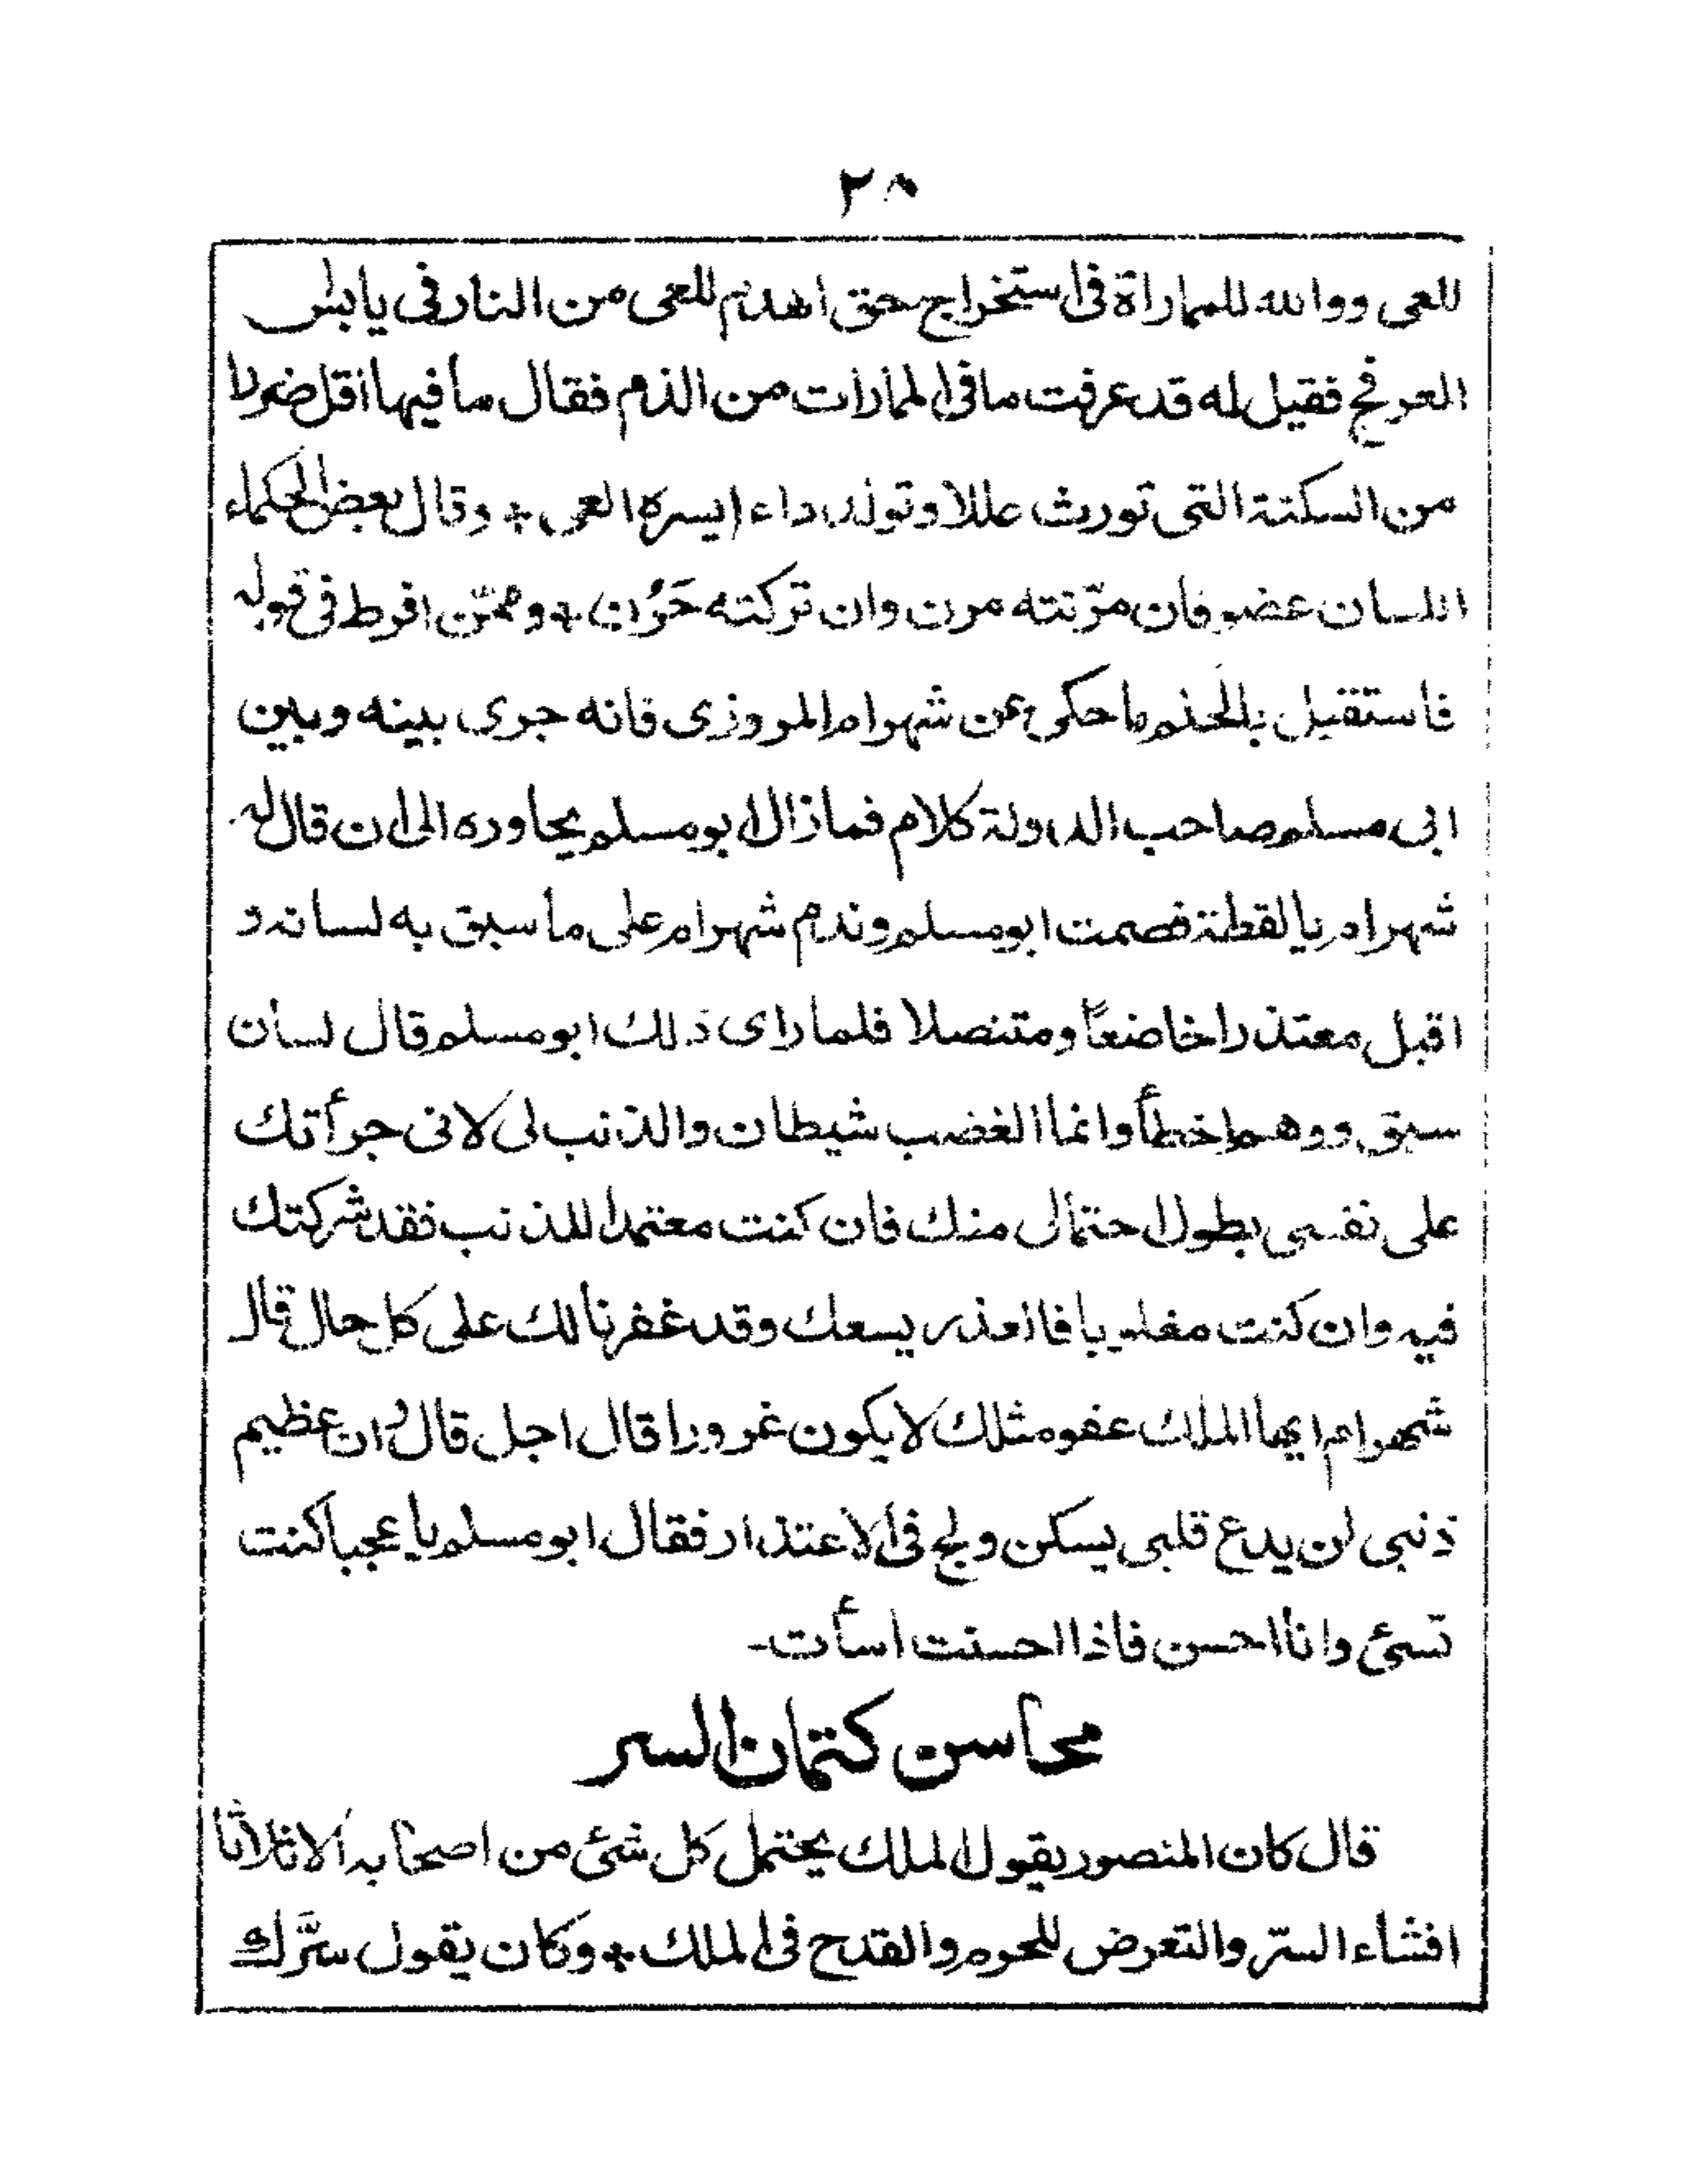 ٢٨
للعى ووالله للمماراة فى استخراج حق اهدم للعى من النار فى يابس
العرفج فقيل له قد عرفت ما فى الممارات من الذم فقال ما فيها اقل ضررا
من السكتة التى تورث عللا وتولد داء ايسره العى + وقال بعض الحكماء
اللسان عضو فان مرّنته مرن وان تركته حَرُن + وممّن افرط فى قوله
فاستقيل بالحلم ما حكى عن شهرام المروزى فانه جرى بينه وبين
ابى مسلم صاحب الدولة كلام فما زال ابو مسلم يحاوره الى ان قال له
شهرام يا لقطة فصمت ابو مسلم وندم شهرام على ما سبق به لسانه و
اقبل معتذرا خاضعاً ومتنصلا فلما راى ذلك ابو مسلم قال لسان
سبق ووهم اخطأ وانما الغضب شيطان والذنب لى لانى جرأتك
على نفسى بطول احتمالى منك فان كنت معتمدا للذنب فقد شركتك
فيه وان كنت مغلوبا فالعذر يسعك وقد غفرنا لك على كل حال قال
شهرام ايها الملك عفو مثلك لا يكون غرورا قال اجل قال وان عظيم
ذنبى لن يدع قلبى يسكن ولج فى الاعتذار فقال ابو مسلم يا عجبا كنت
تسئ وانا احسن فاذا احسنت اسأت-
محاسن كتمان السر
قال كان المنصور يقول الملك يحتمل كل شئ من اصحابه الا ثلاثا
افشاء السرّ والتعرض للحرم والقدح فى الملك + وكان يقول سرَّك